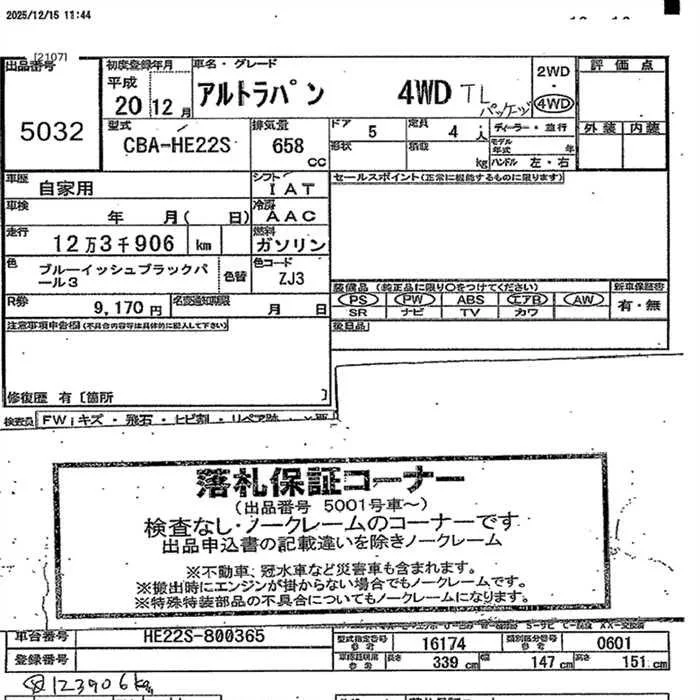 2025/12/15 11:44
[2107]
出品番号
5032
初度登録年月
平成
20 12 月
車名・グレード
アルトラパン 4WD TL
パッケージ
2WD
・
4WD
評価点
型式
CBA-HE22S
排気量
658
cc
ドア
5
定員
4 人
形状
積載
kg
ディーラー・並行
モデル
年式 年
ハンドル 左・右
外装 内装
車歴
自家用
シフト
I A T
車検
年 月( 日)
冷房
A A C
走行
12万3千906 km
燃料
ガソリン
色
ブルーイッシュブラックパ
ール3
色替
色コード
ZJ3
R券
9,170 円
名変通知期限
月 日
セールスポイント(正常に機能するものに限ります)
装備品 (純正品に限り○をつけてください)
PS PW ABS エアB AW
SR ナビ TV カワ
新車保証書
有・無
後日品
注意事項申告欄(不具合内容等は具体的に記入して下さい)
修復歴 有〔箇所 〕
検査員
FWiキズ・飛石・ヒビ割・リペア跡
落札保証コーナー
(出品番号 5001号車〜)
検査なし・ノークレームのコーナーです
出品申込書の記載違いを除きノークレーム
※不動車、冠水車など災害車も含まれます。
※搬出時にエンジンが掛からない場合でもノークレームです。
※特殊特装部品の不具合についてもノークレームになります。
車台番号
HE22S-800365
型式指定番号
参考
16174
類別区分番号
参考
0601
登録番号
長さ
339 cm
幅
147 cm
高さ
151 cm
123906km